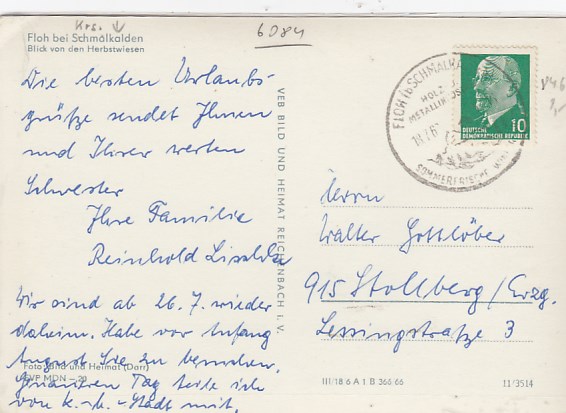 Krs.
6084
Floh bei Schmalkalden
Blick von den Herbstwiesen
Die besten Urlaubs-
grüße sendet Ihnen
und Ihrer werten
Schwester
Ihre Familie
Reinhold
Wir sind ab 26.7. wieder
daheim. Habe vor Anfang
August Sie zu besuchen.
Genauen Tag teile ich
von K.-M.-Stadt mit.
Foto: Bild und Heimat (Darr)
EVP MDN –.20
VEB BILD UND HEIMAT REICHENBACH i. V.
FLOH ü. SCHMALKA
HOLZ
METALLINDUS
SOMMERFRISCHE
DEUTSCHE
DEMOKRATISCHE REPUBLIK
10
846
Herrn
Walter Gottlöber
915 Stollberg/Erzg.
Lessingstraße 3
III/18 6 A 1 B 366 66
11/3514